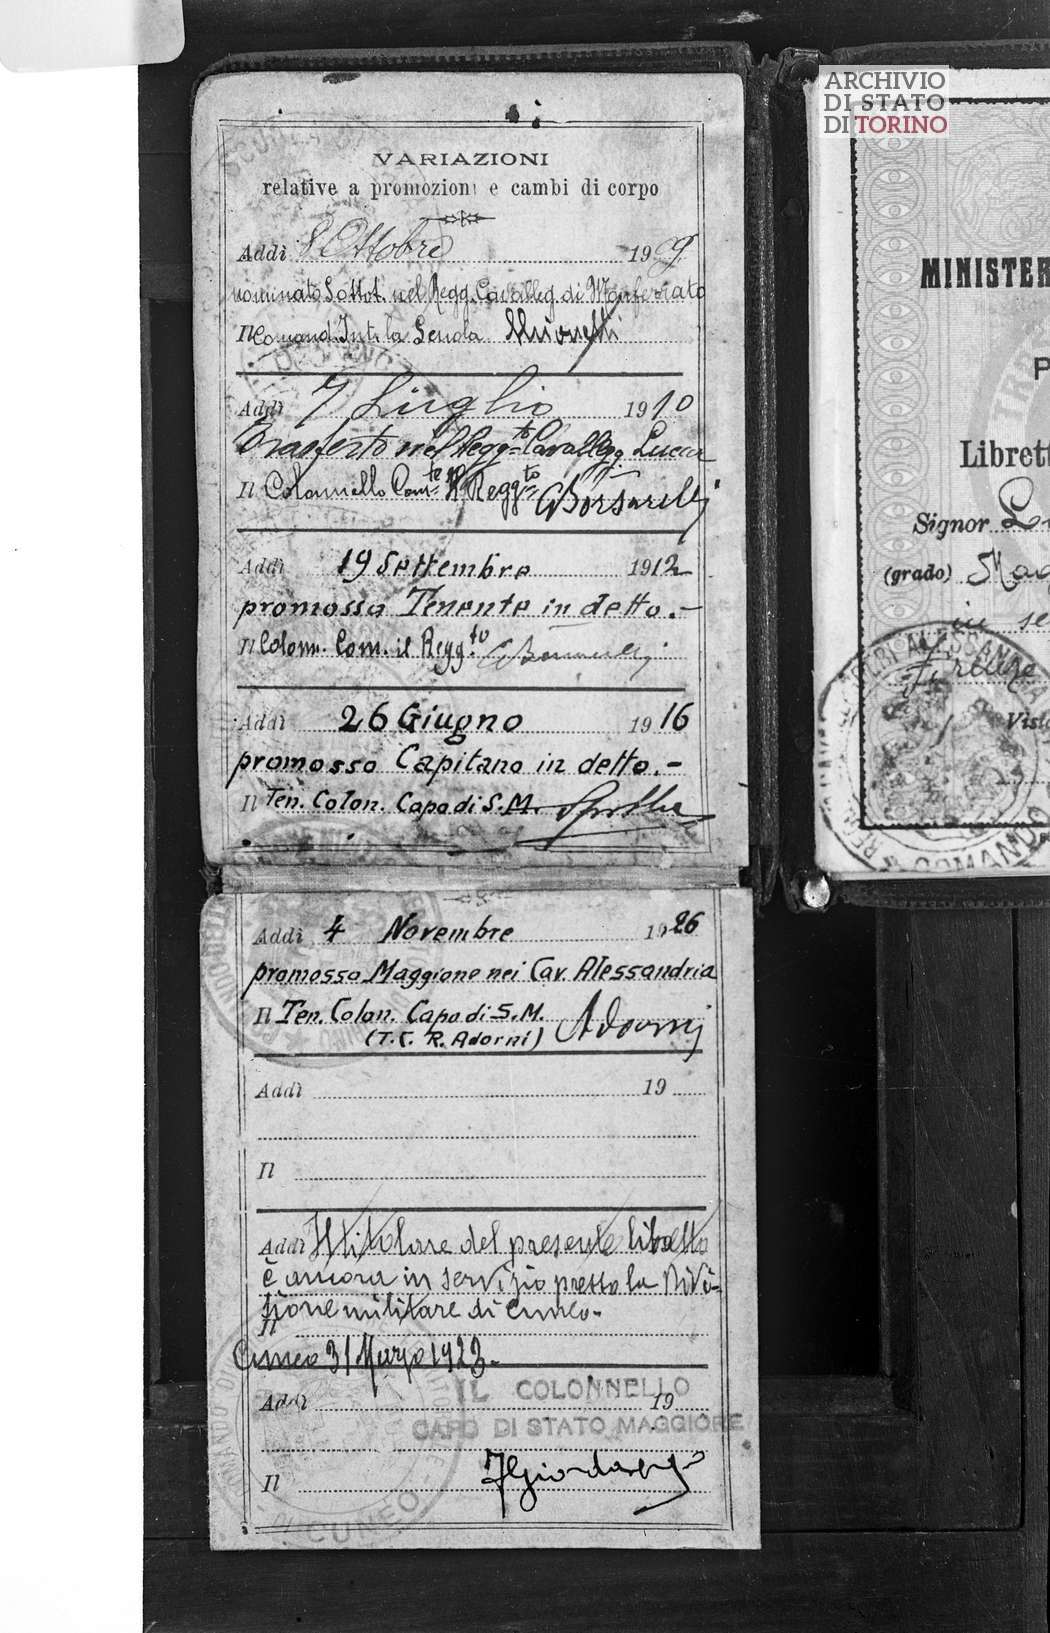 ARCHIVIO
DI STATO
DI TORINO
VARIAZIONI
relative a promozioni e cambi di corpo
Addì 8 Ottobre 1909
nominato Sottot. nel Regg. Cavalleg. di Monferrato
Il Comand. Int. la Scuola
Addì 7 Luglio 1910
Trasferto nel Regg.to Cavallegg. Lucca
Il Colonnello Com.te il Regg.to GBorsarelli
Addì 19 Settembre 1912
promosso Tenente in detto.-
Il Colonn. Com. il Regg.to
Addì 26 Giugno 1916
promosso Capitano in detto.-
Il Ten. Colon. Capo di S.M.
Addì 4 Novembre 1926
promosso Maggiore nei Cav. Alessandria
Il Ten. Colon. Capo di S.M. Adorni
(T.C. R. Adorni)
Addì 19
Il
Addì Il titolare del presente libretto
è ancora in servizio presso la Divi-
sione militare di Cuneo-
Il
Cuneo 31 Marzo 1923-
IL COLONNELLO
Addì 19
CAPO DI STATO MAGGIORE
Il
DI CUNEO
MINISTER
P
Librett
Signor
(grado) Mag
in se
Firenze
Visto
COMANDO